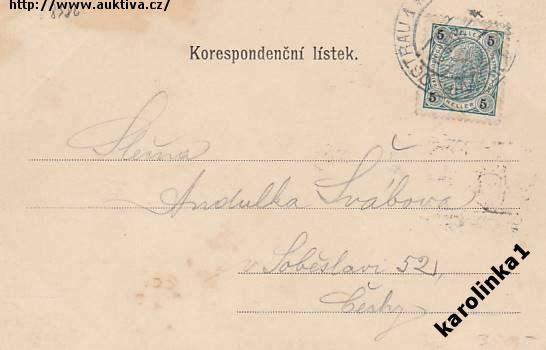 http://www.auktiva.cz/
Korespondenční lístek.
5 5
HELLER
5 5
Slečna
Andulka Švábova
v Soběslavi 52,
Čechy
karolinka1